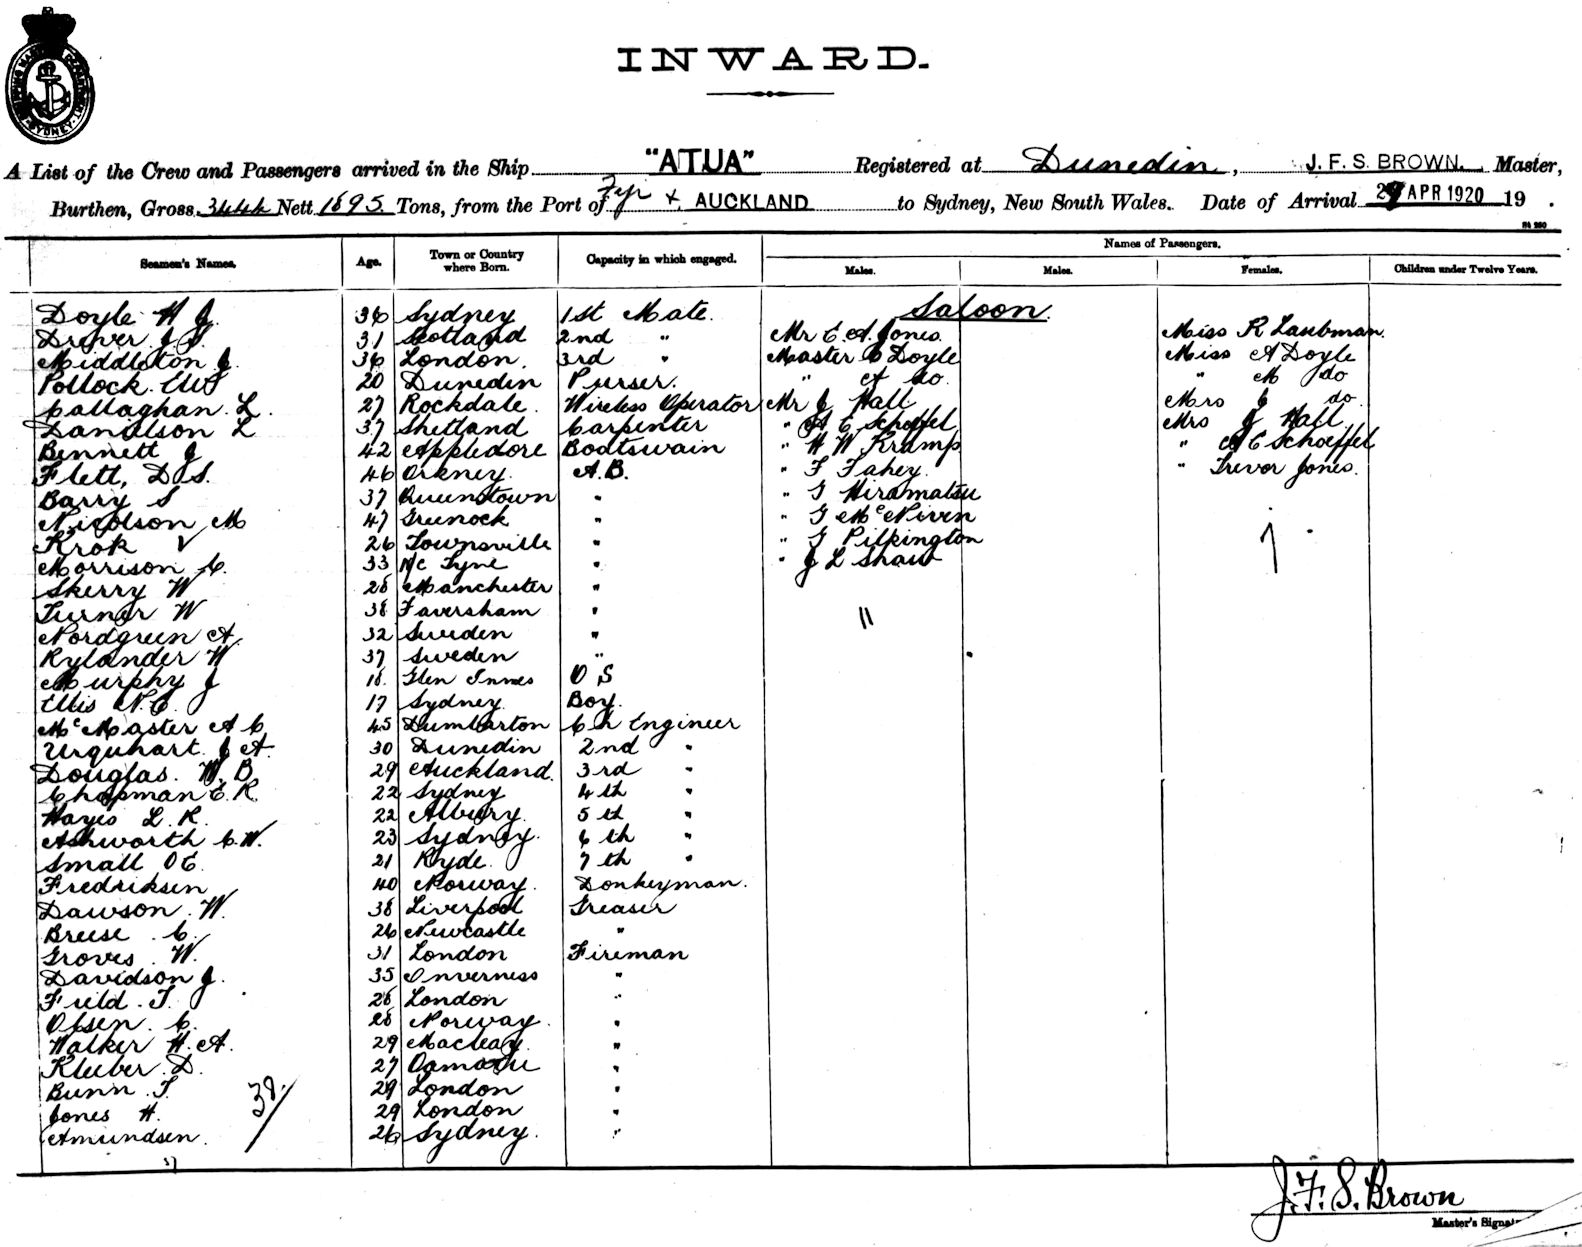 SHIPPING MASTER'S DEPARTMENT
SYDNEY
INWARD.
A List of the Crew and Passengers arrived in the Ship "ATUA" Registered at Dunedin, J. F. S. BROWN. Master,
Burthen, Gross 3444 Nett 1695 Tons, from the Port of Fiji & AUCKLAND to Sydney, New South Wales. Date of Arrival 29 APR 1920 19 .
Seamen's Names. Age. Town or Country where Born. Capacity in which engaged. Names of Passengers.
Males. Males. Females. Children under Twelve Years.
Saloon
Doyle H J. 36 Sydney 1st Mate.
Drever J 31 Scotland 2nd " Mr E. A. Jones. Miss R Laubman.
Middleton J. 36 London. 3rd " Master C Doyle Miss A Doyle
Pollock 20 Dunedin Purser. " A do. " M do
Callaghan. L. 27 Rockdale. Wireless Operator Mr J Hall Mrs J do.
Danielson L 37 Shetland Carpenter " A E Schoeffel Mrs J Hall
Bennett J 42 Appledore Boatswain " H W Kramp " A E Schoeffel
Flett, D S. 46 Orkney. A.B. " F Fahey. " Trevor Jones.
Barry S 37 Queenstown " " G Hiramatsu
Nicolson M 47 Greenock " " G McNiven
Krok V 26 Townsville " " G Pilkington
Morrison C. 33 N/c Tyne " " J L Shaw
Skerry W 28 Manchester "
Turner W 38 Faversham "
Nordgreen A. 32 Sweden "
Rylander W 37 Sweden "
Murphy J 18. Glen Innes O S
Ellis N. C. 17 Sydney. Boy.
McMaster A C 45 Dumbarton Ch Engineer
Urquhart. J A 30 Dunedin 2nd "
Douglas. W. B 29 Auckland. 3rd "
Chapman E. R. 22 Sydney 4th "
Hayes L. R. 22 Albury. 5th "
Ashworth C. W. 23 Sydney. 6th "
Small O E. 21 Ryde. 7th "
Fredriksen 40 Norway. Donkeyman.
Dawson. W. 38 Liverpool Greaser
Breese. C. 26 Newcastle "
Groves. W. 31 London Fireman
Davidson J. 35 Inverness "
Field. T. 28 London "
Olsen. C. 28 Norway. "
Walker H. A. 29 Macleay. "
Kleeber. D. 27 Oamaru "
Bunn. T. 29 London "
Jones H. 29 London "
Amundsen. 26 Sydney. "
11
7
38
37
J. F. S. Brown
Master's